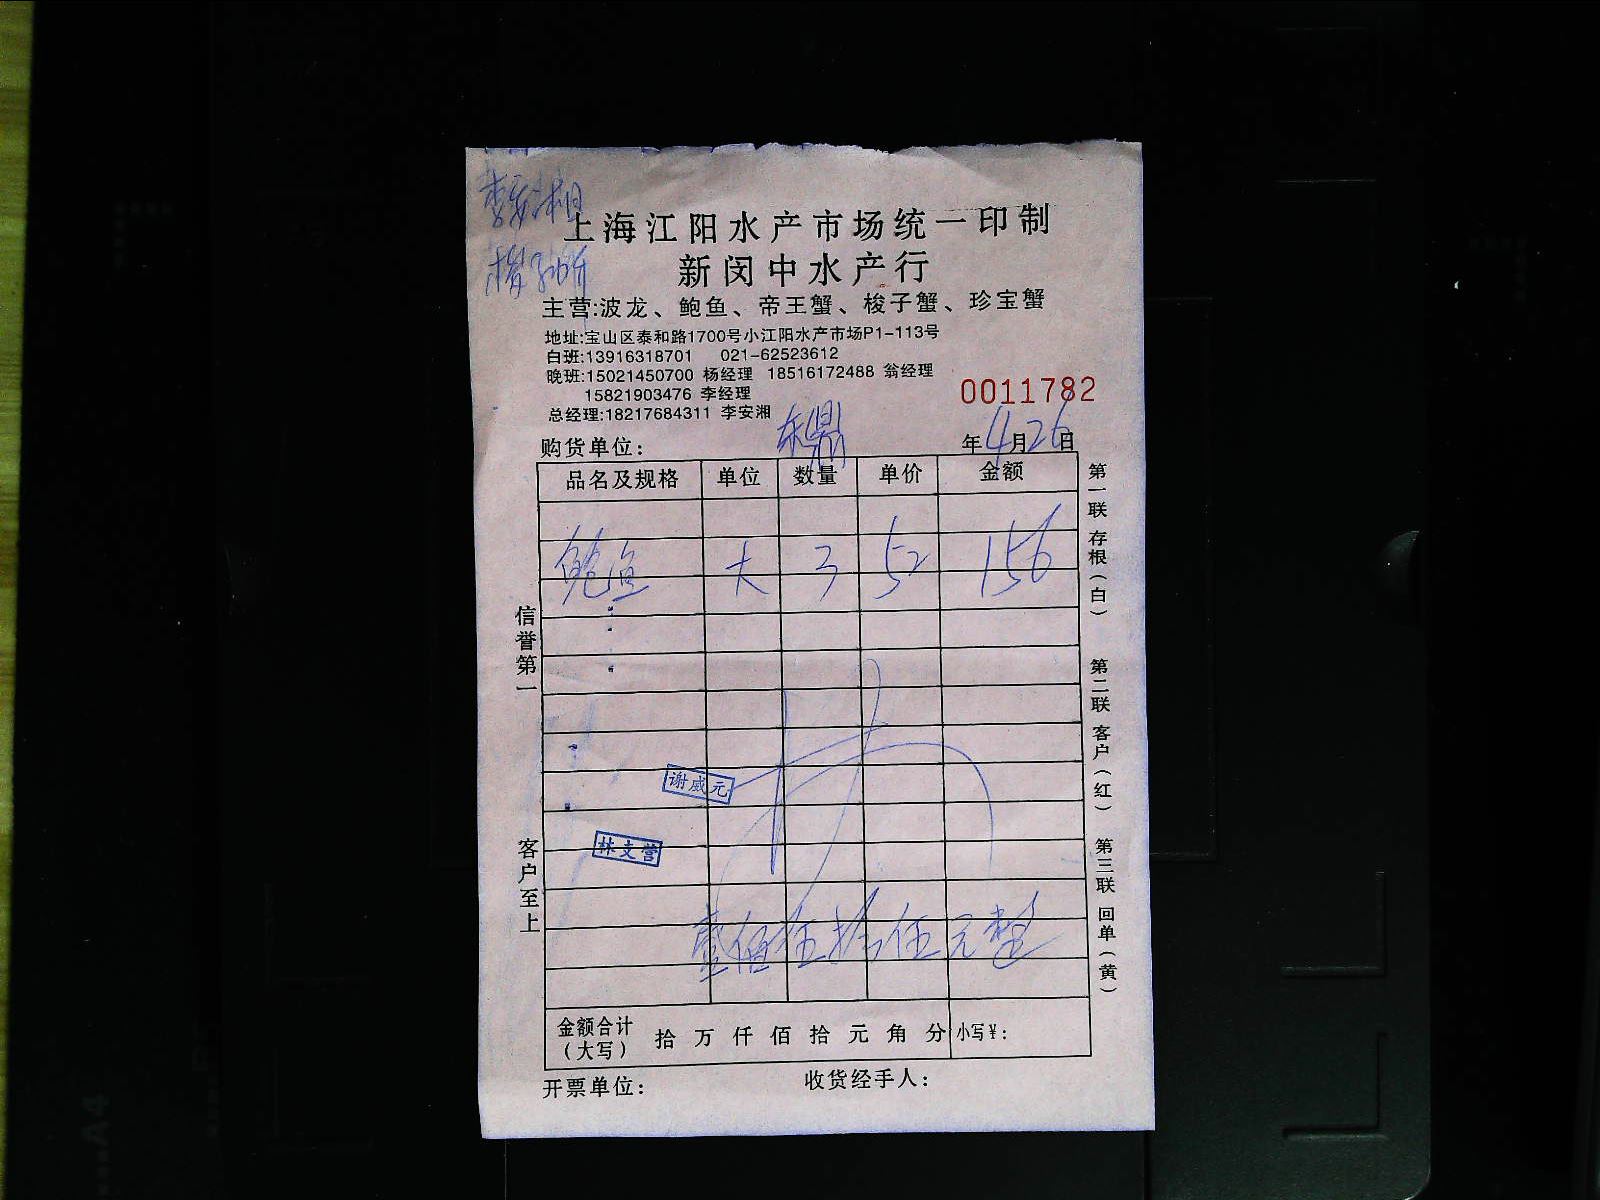 李安湘
上海江阳水产市场统一印制
新闵中水产行
主营:波龙、鲍鱼、帝王蟹、梭子蟹、珍宝蟹
地址:宝山区泰和路1700号小江阳水产市场P1-113号
白班:13916318701 021-62523612
晚班:15021450700 杨经理 18516172488 翁经理
15821903476 李经理
总经理:18217684311 李安湘
0011782
购货单位:
年4月26日
品名及规格 单位 数量 单价 金额
鲍鱼 大 3 52 156
谢威元
林支营
壹佰伍拾伍元整
金额合计(大写) 拾 万 仟 佰 拾 元 角 分 小写¥:
开票单位: 收货经手人:
信誉第一
客户至上
第一联 存根(白)
第二联 客户(红)
第三联 回单(黄)